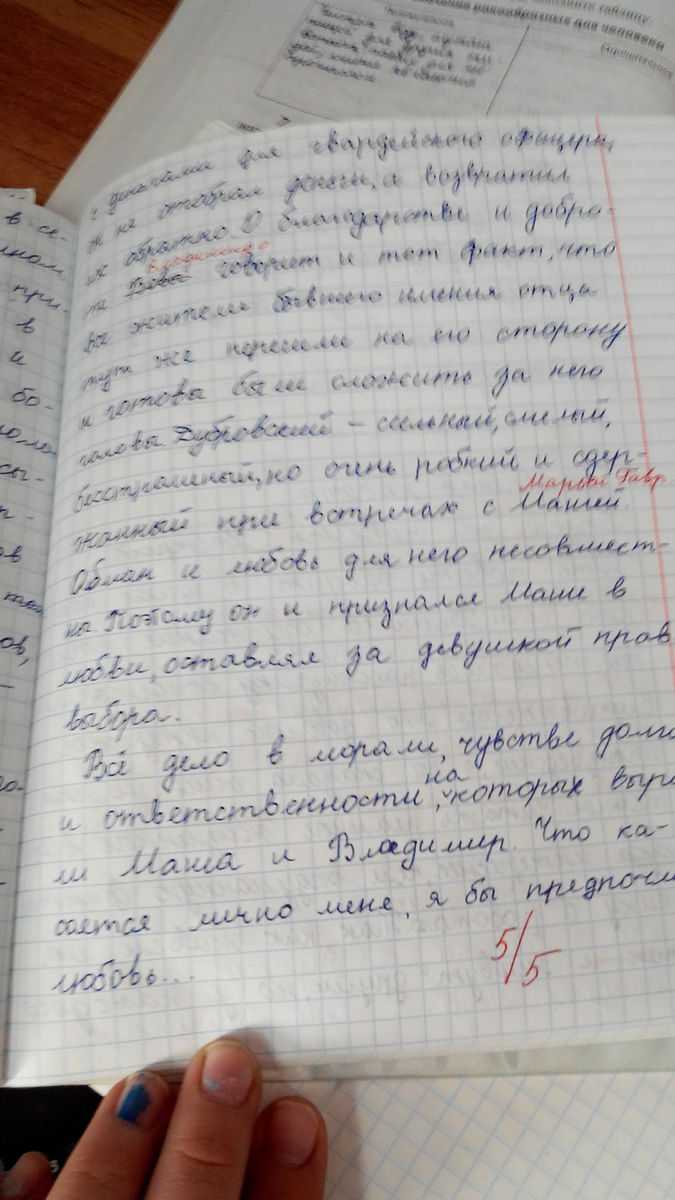 с деньгами для гвардейского офицера,
он не отобрал деньги, а возвратил
их обратно. О благодарстве и добро-
Владимира
те говорит и тот факт, что
все жители бывшего имения отца
тут же перешли на его сторону
и готовы были сложить за него
головы. Дубровский – сильный, смелый,
бесстрашный, но очень робкий и сдер-
Марьей Гавр
жанный при встречах с Машей.
Обман и любовь для него несовмест-
ны. Поэтому он и признался Маше в
любви, оставляя за девушкой прав
выбора.
Всё дело в морали, чувстве долга
на
и ответственности, которых выра
ли Маша и Владимир. Что ка-
сается лично мене, я бы предпочл
любовь...
5/5
в се-
при-
в
и
бо-
сы-
ов,